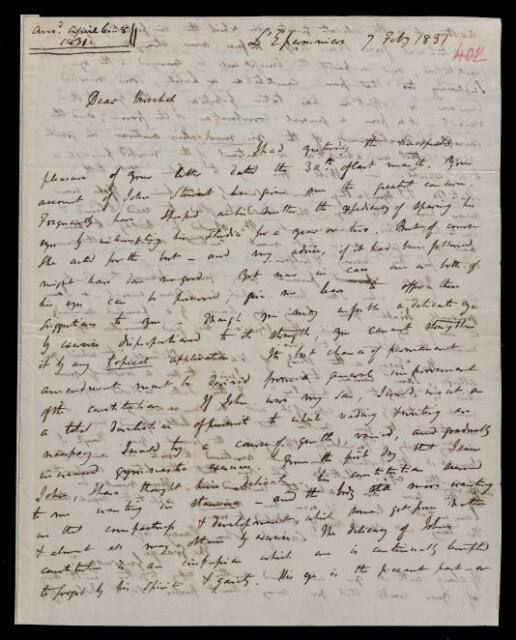 Ansd April 6 or 8
1831.
L'Epervier 7 Feby 1831
402
Dear Herschel
I had yesterday the unexpected
pleasure of your letter dated the 30th of last month. Your
account of John Stewart has given me the greatest concern.
Frequently have I urged on his mother the expediency of sparing his
eyes by interrupting his studies for a year or two. But of course
she acted for the best – and my advice, if it had been followed,
might have done no good. But now in case one or both of
his eyes can be preserved give me leave to offer these
suggestions to you. Though you may a delicate eye
by exercise disproportioned to its strength, you cannot strengthen
it by any topical application. Its best chance of permanent
amendment must be derived from general improvement
of the constitution. If John were my son, I would insist on
a total dereliction of pursuits to which reading & writing are
necessary. I would try a course of gentle, varied, and gradually
increased gymnastic exercises. From the first day that I saw
John I have thought him delicate his constitution seemed
to me wanting in stamina – and the body still more wanting
in that compactness & development, which some get from nature
& almost all may attain by exercise. The delicacy of John's
constitution is an impression which one is continually tempted
to forget by his spirits & gaiety. His eye is the peccant part – or